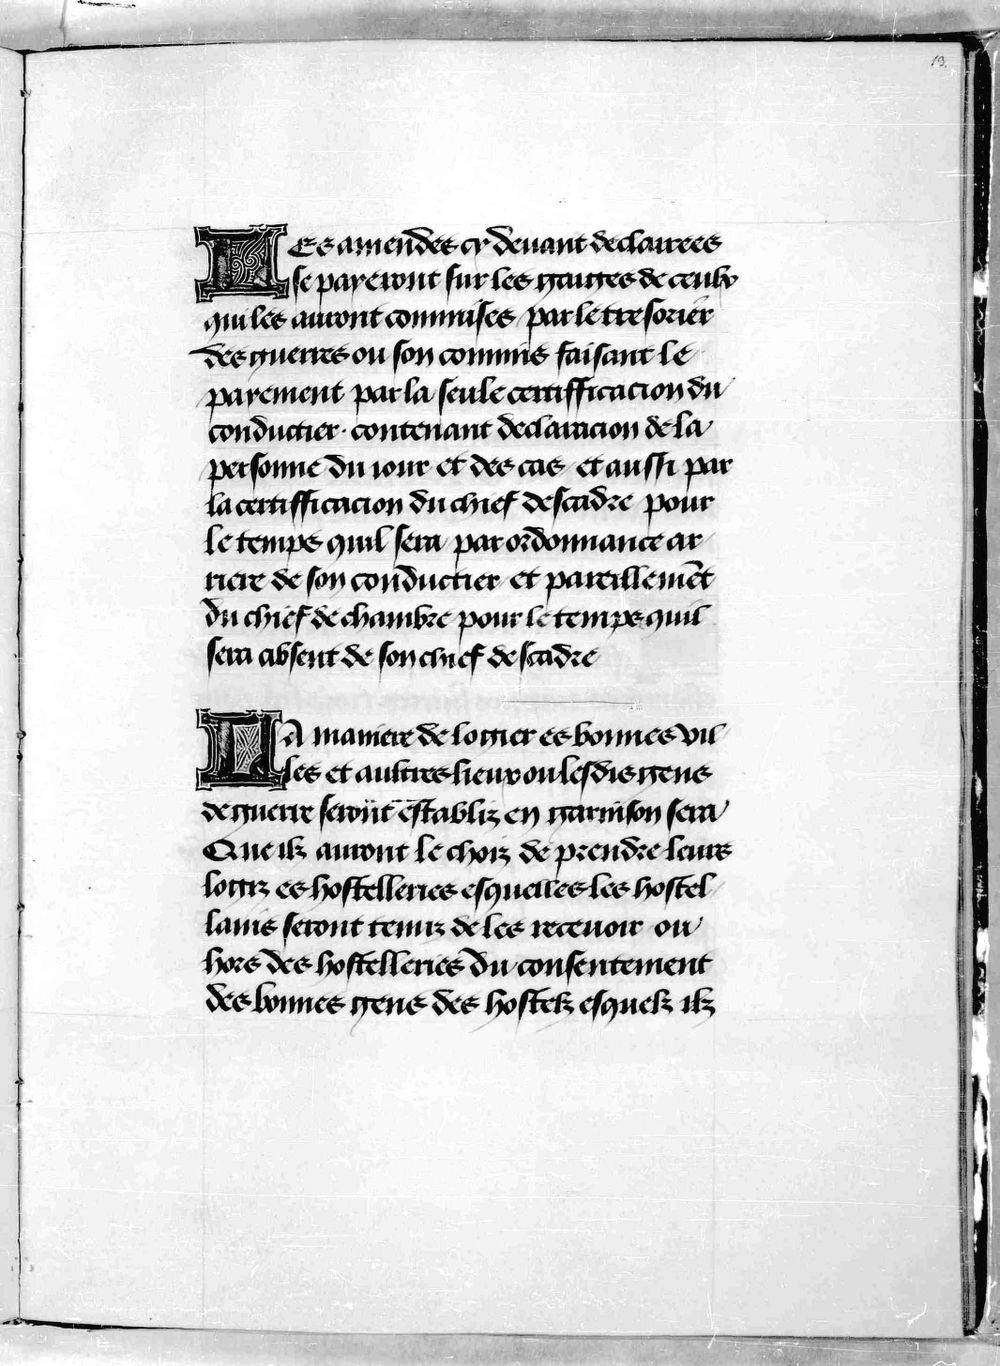 13.
LEs amendes cy deuant declairees
se payeront sur les gaiges de ceulx
qui les auront commises par le tresorier
des guerres ou son commis faisant le
payement par la seule certifficacion du
conductier. contenant declaracion de la
personne du iour et des cas et aussi par
la certifficacion du chief descadre pour
le temps quil sera par ordonnance ar
riere de son conductier et pareillemēt
du chief de chambre pour le temps quil
sera absent de son chief descadre
LA maniere de logier es bonnes vil
les et aultres lieux ou lesdis gens
de guerre seront establiz en garnison sera
Que ilz auront le choiz de prendre leurs
logiz es hostelleries esquelles les hostel
lains seront tenuz de les receuoir ou
hors des hostelleries du consentement
des bonnes gens des hostelz esquelz ilz